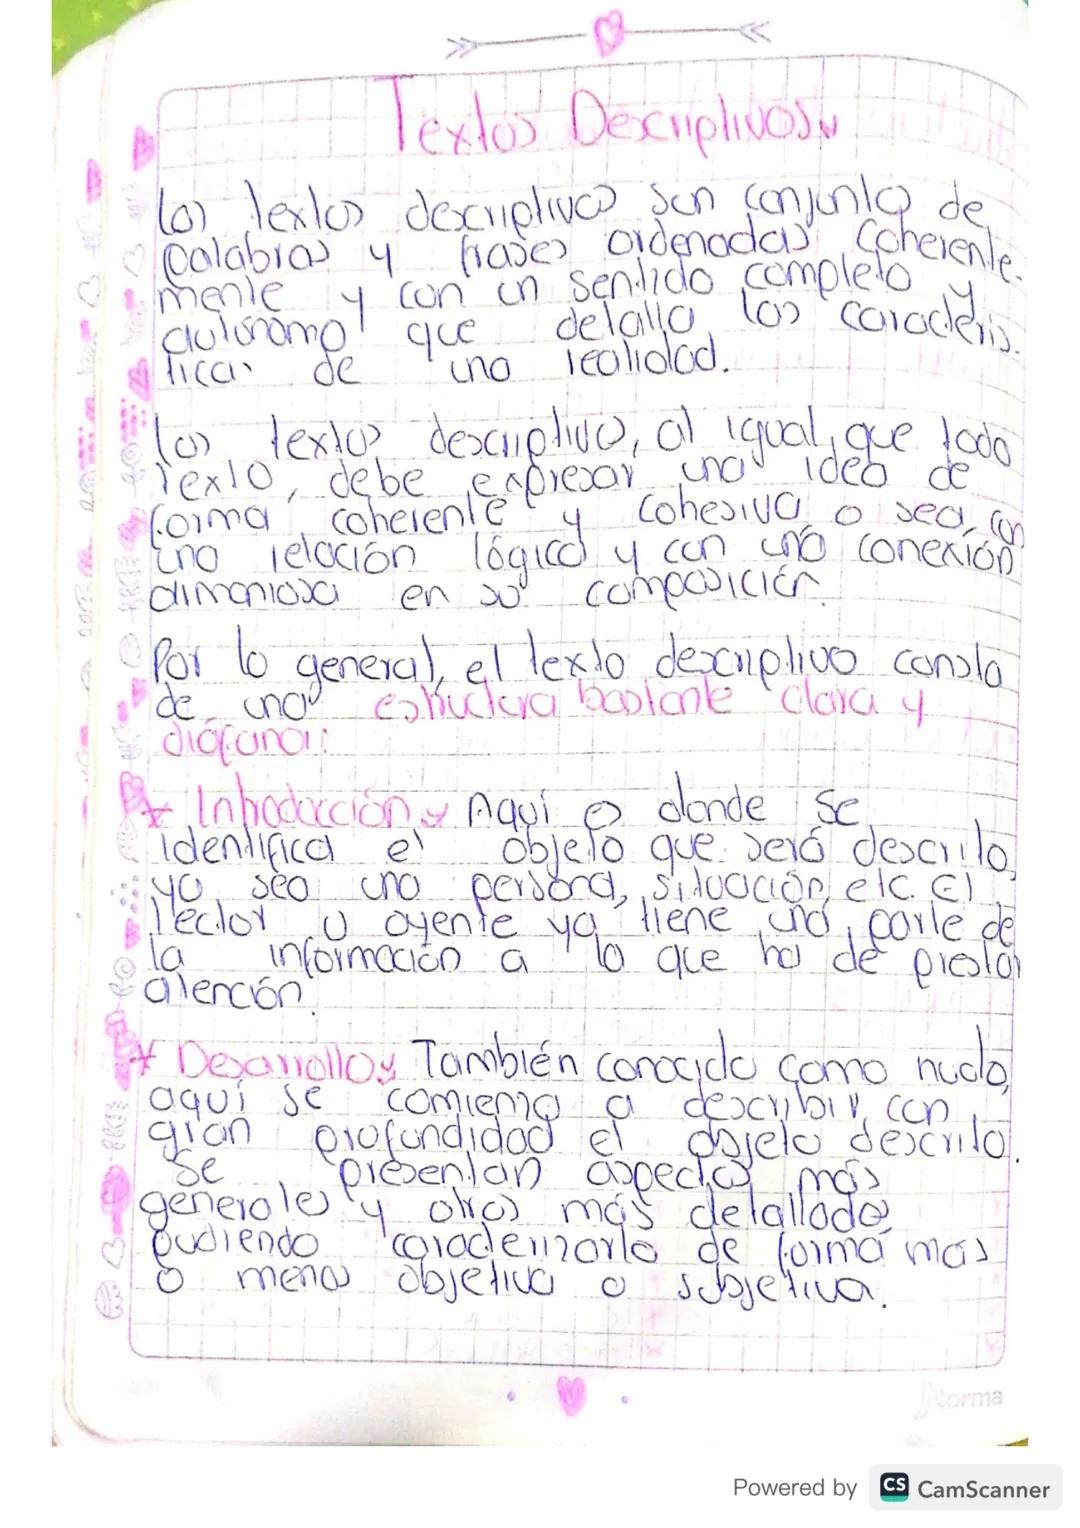 Textos Descriptivos
Los textos descriptivos son conjunto de
palabras y frases ordenadas coherente-
mente y con un sentido completo y
autónomo que detalla las caracterís-
ticas de una realidad.
Los textos descriptivo, al igual que todo
texto, debe expresar una idea de
forma coherente y cohesiva o sea, con
una relación lógica y con una conexión
armoniosa en su composición.
Por lo general, el texto descriptivo consta
de una estructura bastante clara y
diáfana:
* Introducción Aquí es donde se
identifica el objeto que será descrito,
ya sea una persona, situación, etc. El
lector u oyente ya tiene una parte de
la información a la que ha de prestar
atención.
* Desarrollo También conocido como nudo,
aquí se comienza a describir con
gran profundidad el objeto descrito.
Se presentan aspectos más
generales y otros más detallados
pudiendo caracterizarlo de forma más
o menos objetiva o subjetiva.
Norma
Powered by CS CamScanner